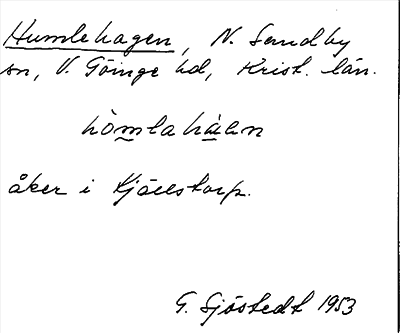 Humlehagen, N. Sandby
sn, V. Göinge hd, Krist. län.
åker i Kjällstorp.
G. Sjöstedt 1953